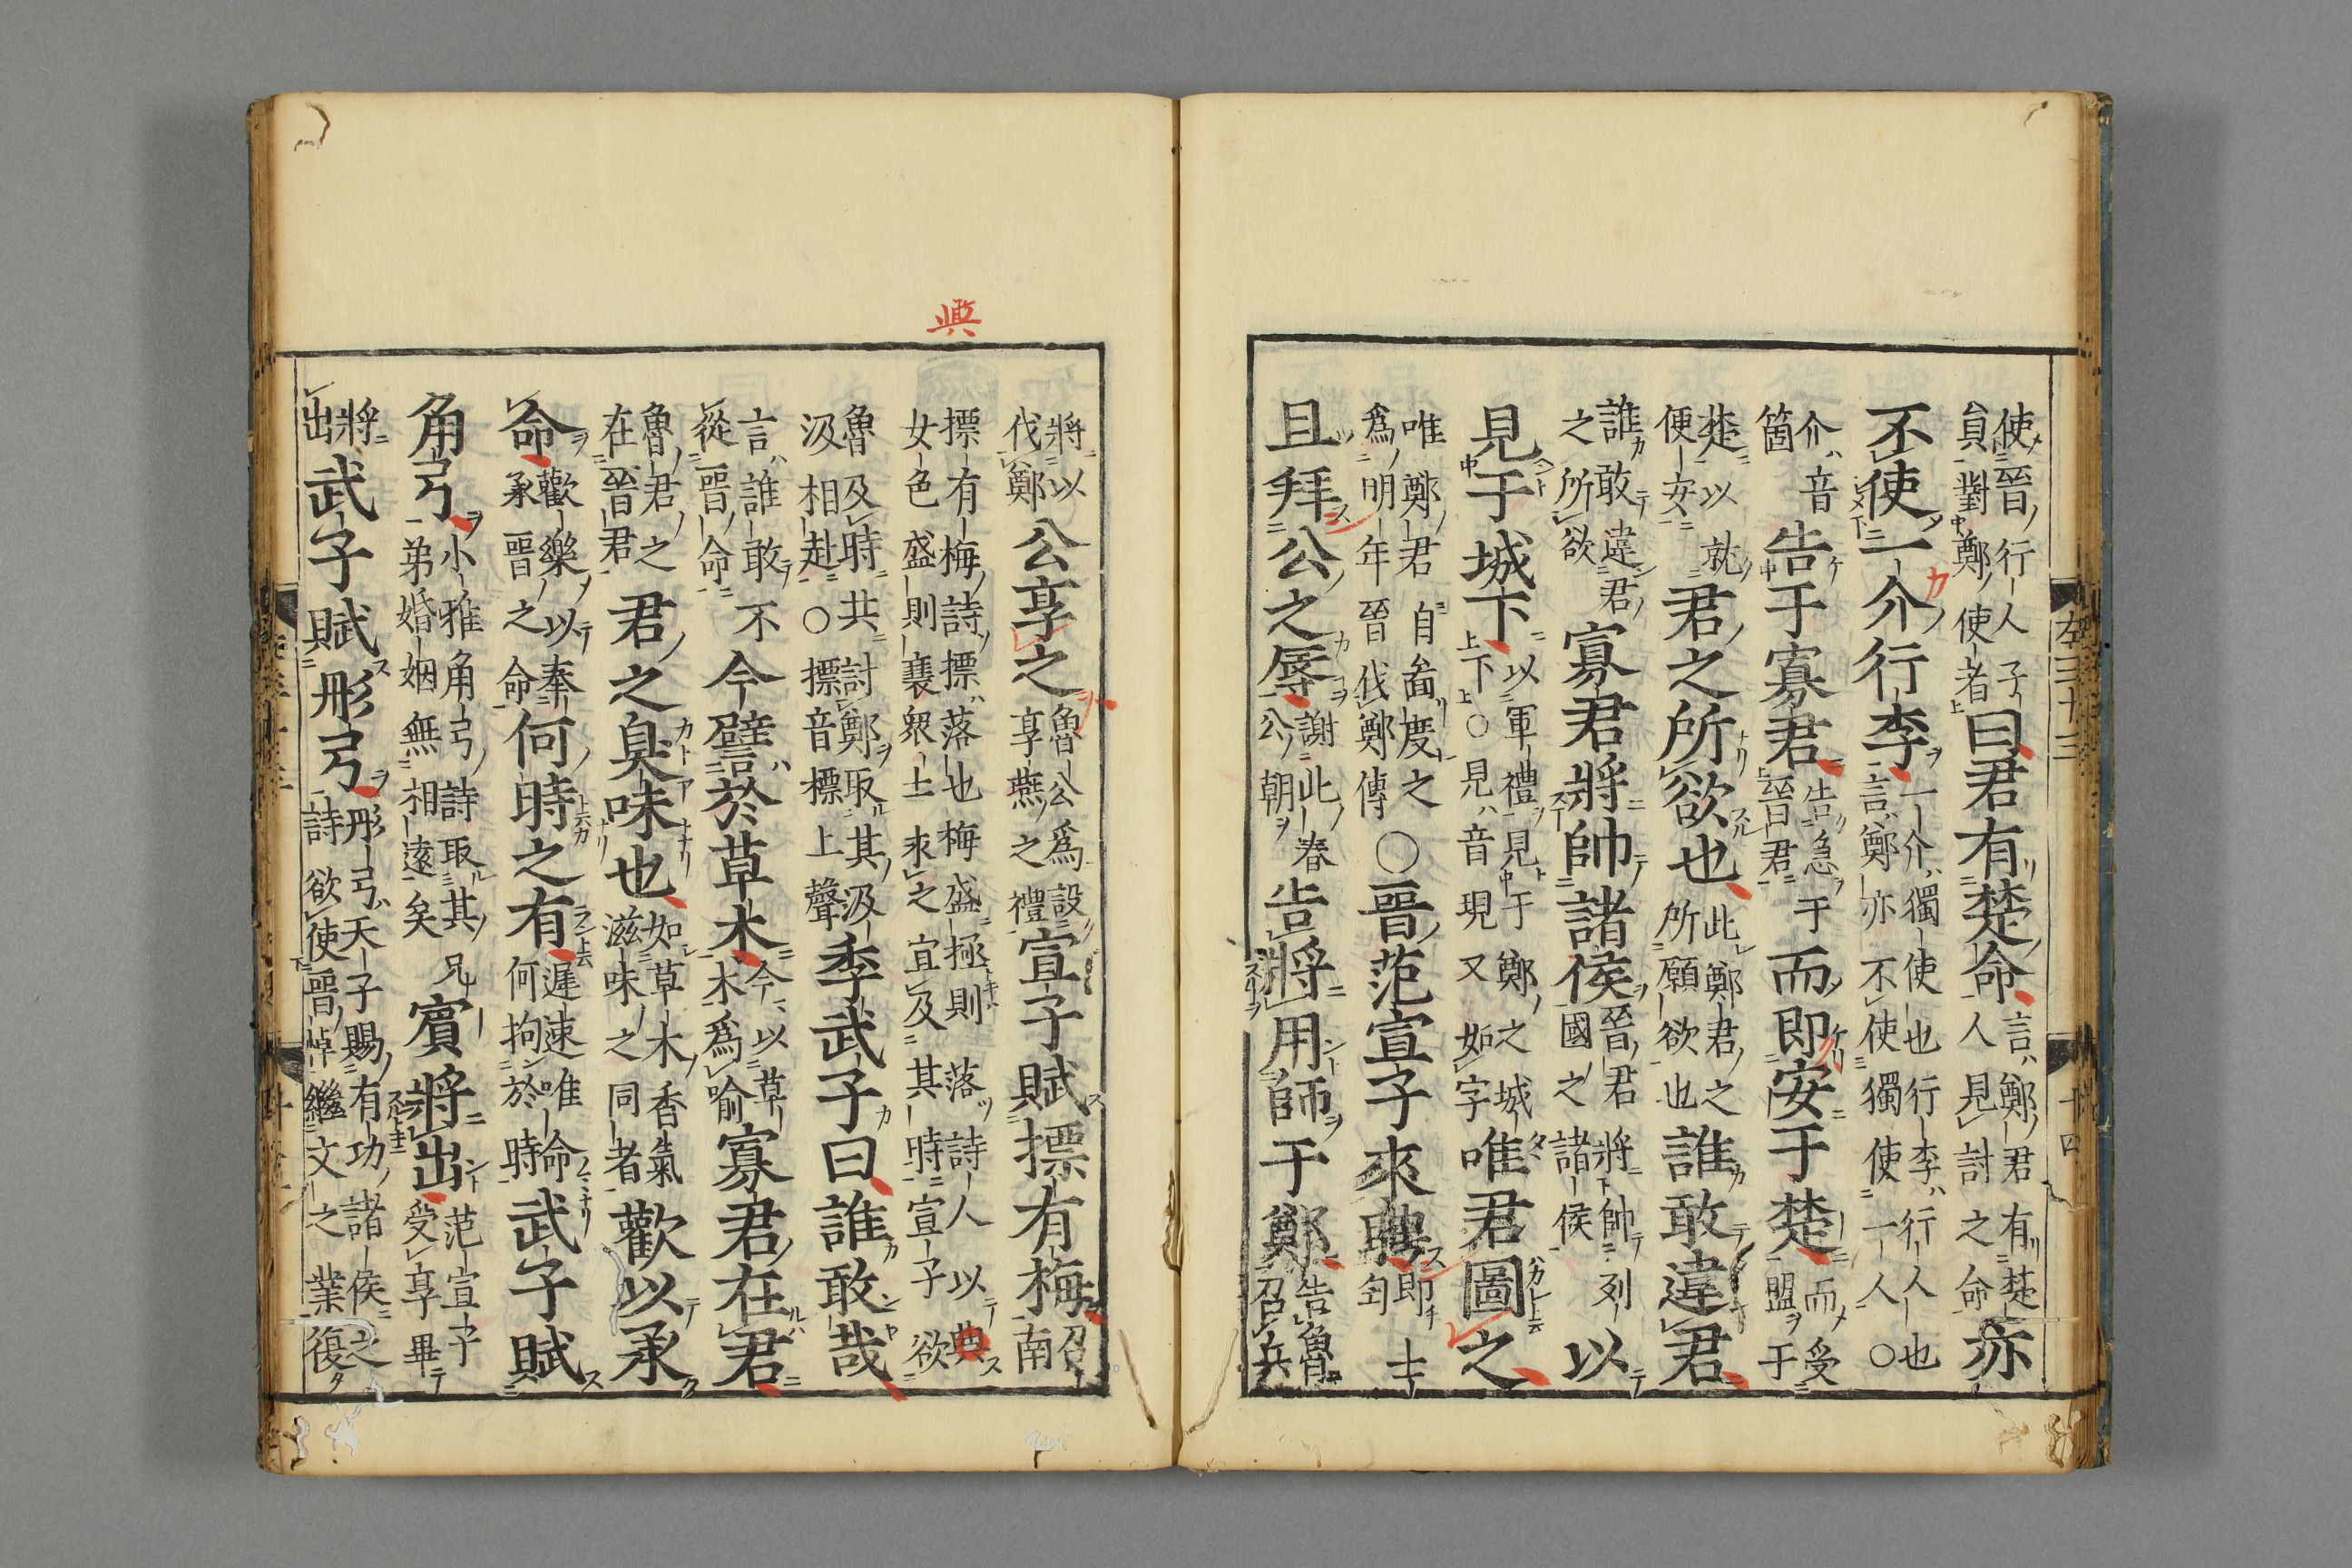 左三十三
十四
使晉行人子員對鄭使者曰君有楚命言鄭君有楚人見討之命亦
不使一介行李一介獨使也行李行人也言鄭亦不使獨使一人〇
介音箇告于寡君告急于晉君而即安于楚而受盟于
楚以就便安君之所欲也此鄭君之所願欲也誰敢違君
誰敢違君之所欲寡君將帥諸侯晉君將帥列國之諸侯以
見于城下以軍禮見于鄭之城下〇見音現又如字唯君圖之
唯鄭君自啚度之爲明年晉伐鄭傳〇晉范宣子來聘即士匄
且拜公之辱謝此春公朝告將用師于鄭告魯召兵
興
將以伐鄭公享之魯公爲設享燕之禮宣子賦摽有梅召南
摽有梅詩摽落也梅盛極則落詩人以典女色盛則衰衆士求之宜及其時宣子欲
魯及時共討鄭取其汲汲相赴〇摽音標上聲季武子曰誰敢哉
言誰敢不從晉命今譬於草木今以草木爲喻寡君在君
魯君之在晉君君之臭味也如草木香氣滋味之同者歡以承
命歡樂以奉承晉之命何時之有遲速唯命何拘於時武子賦
角弓小雅角弓詩取其兄弟婚姻無相遠矣賓將出范宣子受享畢
將出武子賦彤弓彤弓天子賜有功諸侯之詩欲使晉悼繼文之業復